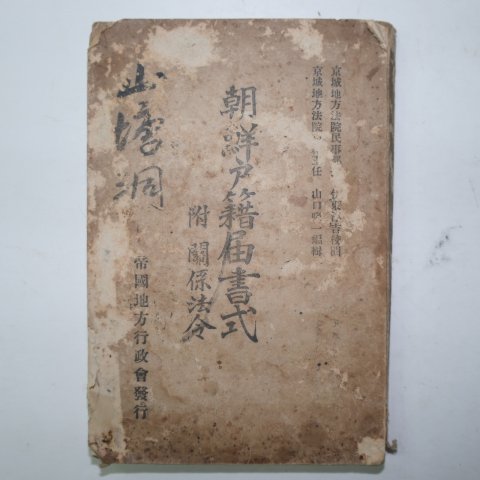 京城地方法院民事部
京城地方法院 主任 山口 一編輯
朝鮮戶籍届書式
附關係法令
帝國地方行政會發行